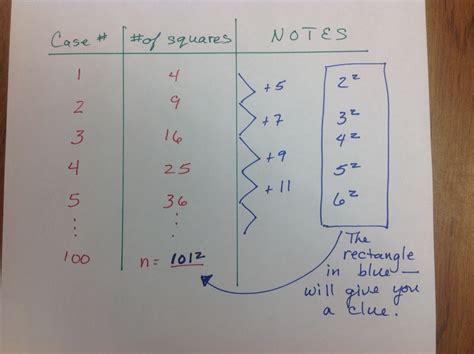 Case # #of squares NOTES
1 4 2²
+5
2 9 3²
+7
3 16 4²
+9
4 25 5²
+11
5 36 6²
100 n= 101²
The
rectangle
in blue—
will give you
a clue.